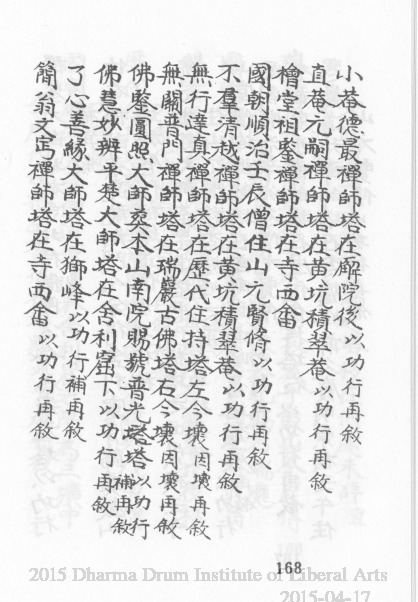 小菴德最禪師塔在廨院後以功行再敘
直菴元嗣禪師塔在黄坑積翠菴以功行再敘
檜堂祖鑒禪師塔在寺西畬
國朝順治壬辰僧住山元賢脩以功行再敘
不羣清越禪師塔在黄坑積翠菴以功行再敘
無行達真禪師塔在歷代住持塔左今壞因壞再敘
無關普門禪師塔在瑞巖古佛塔右今壞因壞再敘
佛鑒圓照大師葬本山南院賜號普光塔塔以功行補再敘
佛慧妙辨平楚大師塔在舍利窟下以功行再敘
了心善緣大師塔在獅峰以功行補再敘
簡翁文 禪師塔在寺西畬以功行再敘
168
2015 Dharma Drum Institute of Liberal Arts
2015-04-17